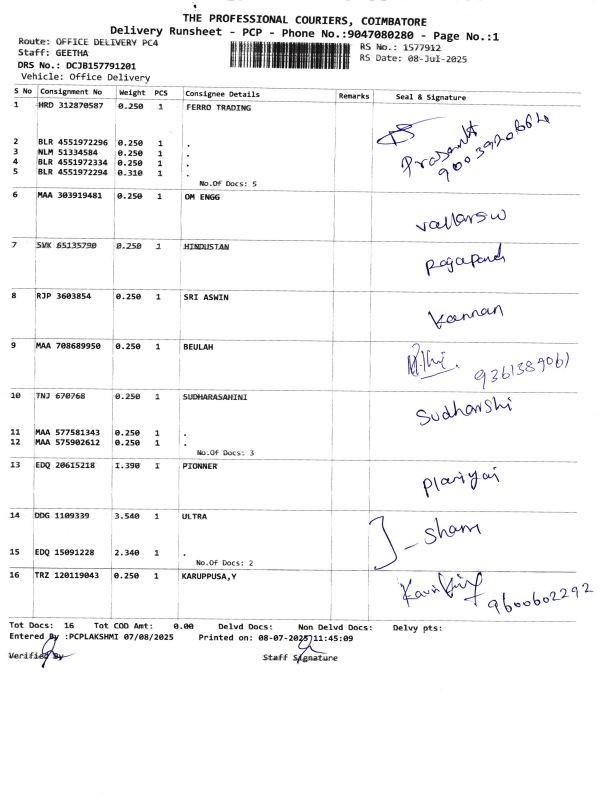 THE PROFESSIONAL COURIERS, COIMBATORE
Delivery Runsheet - PCP - Phone No.:9047080280 - Page No.:1
Route: OFFICE DELIVERY PC4
Staff: GEETHA
DRS No.: DCJB157791201
Vehicle: Office Delivery
RS No.: 1577912
RS Date: 08-Jul-2025
S No Consignment No Weight PCS Consignee Details Remarks Seal & Signature
1 HRD 312870587 0.250 1 FERRO TRADING
Prasanth
2 BLR 4551972296 0.250 1 .
3 NLM 51334584 0.250 1 .
4 BLR 4551972334 0.250 1 .
5 BLR 4551972294 0.310 1 .
No.Of Docs: 5
6 MAA 303919481 0.250 1 OM ENGG
7 SVK 65135790 0.250 1 HINDUSTAN
8 RJP 3603854 0.250 1 SRI ASWIN
Kannan
9 MAA 708689950 0.250 1 BEULAH
9361389061
10 TNJ 670768 0.250 1 SUDHARASAHINI
Sudharshi
11 MAA 577581343 0.250 1 .
12 MAA 575902612 0.250 1 .
No.Of Docs: 3
13 EDQ 20615218 1.390 1 PIONNER
14 DDG 1109339 3.540 1 ULTRA
Sham
15 EDQ 15091228 2.340 1 .
No.Of Docs: 2
16 TRZ 120119043 0.250 1 KARUPPUSA,Y
9600602292
Tot Docs: 16 Tot COD Amt: 0.00 Delvd Docs: Non Delvd Docs: Delvy pts:
Entered By :PCPLAKSHMI 07/08/2025 Printed on: 08-07-2025 11:45:09
Verified By Staff Signature